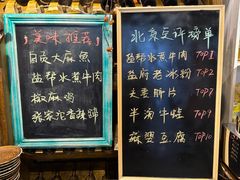 美味推荐
自贡大麻鱼
盐帮水煮牛肉
椒麻鸡
北京豆汁榜单
盐帮水煮牛肉 TOP1
盐府老冰粉 TOP2
夫妻肺片 TOP7
半汤牛蛙 TOP9
麻婆豆腐 TOP10